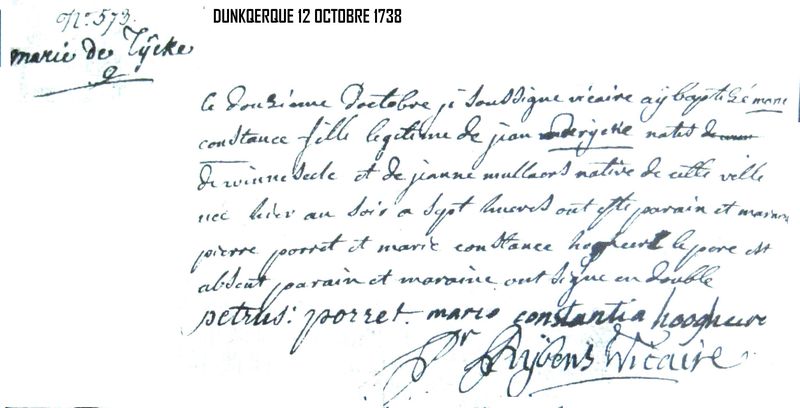 DUNKQERQUE 12 OCTOBRE 1738
N° 573.
marie de Rÿcke
Le douzieme d'octobre je soussigne vicaire aÿ baptisé marie
constance fille legitime de jean derijcke natif
de winnesele et de jeanne mullaers native de cette ville
née hier au soir a sept hueres ont esté parain et maraine
pierre porret et marie constance hogheure le pere est
absent parain et maraine ont signe en double
petrus : porret . maria constantia hoogheure
Rÿbens Vicaire